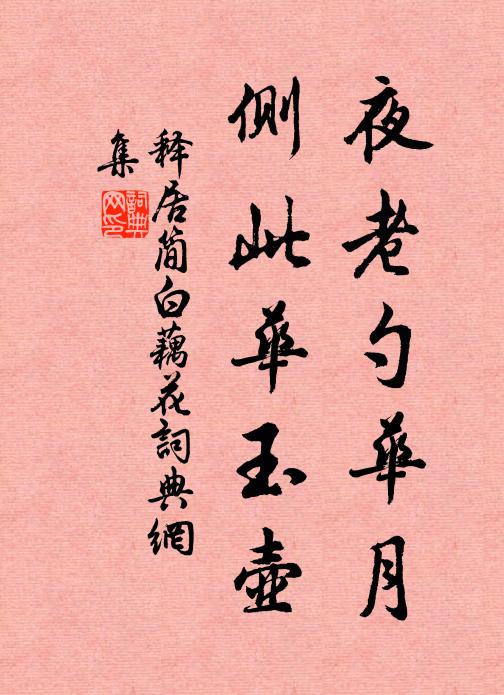 夜老勺華月
側此華玉壺
释居简白藕花詞典網
集
詞典网印